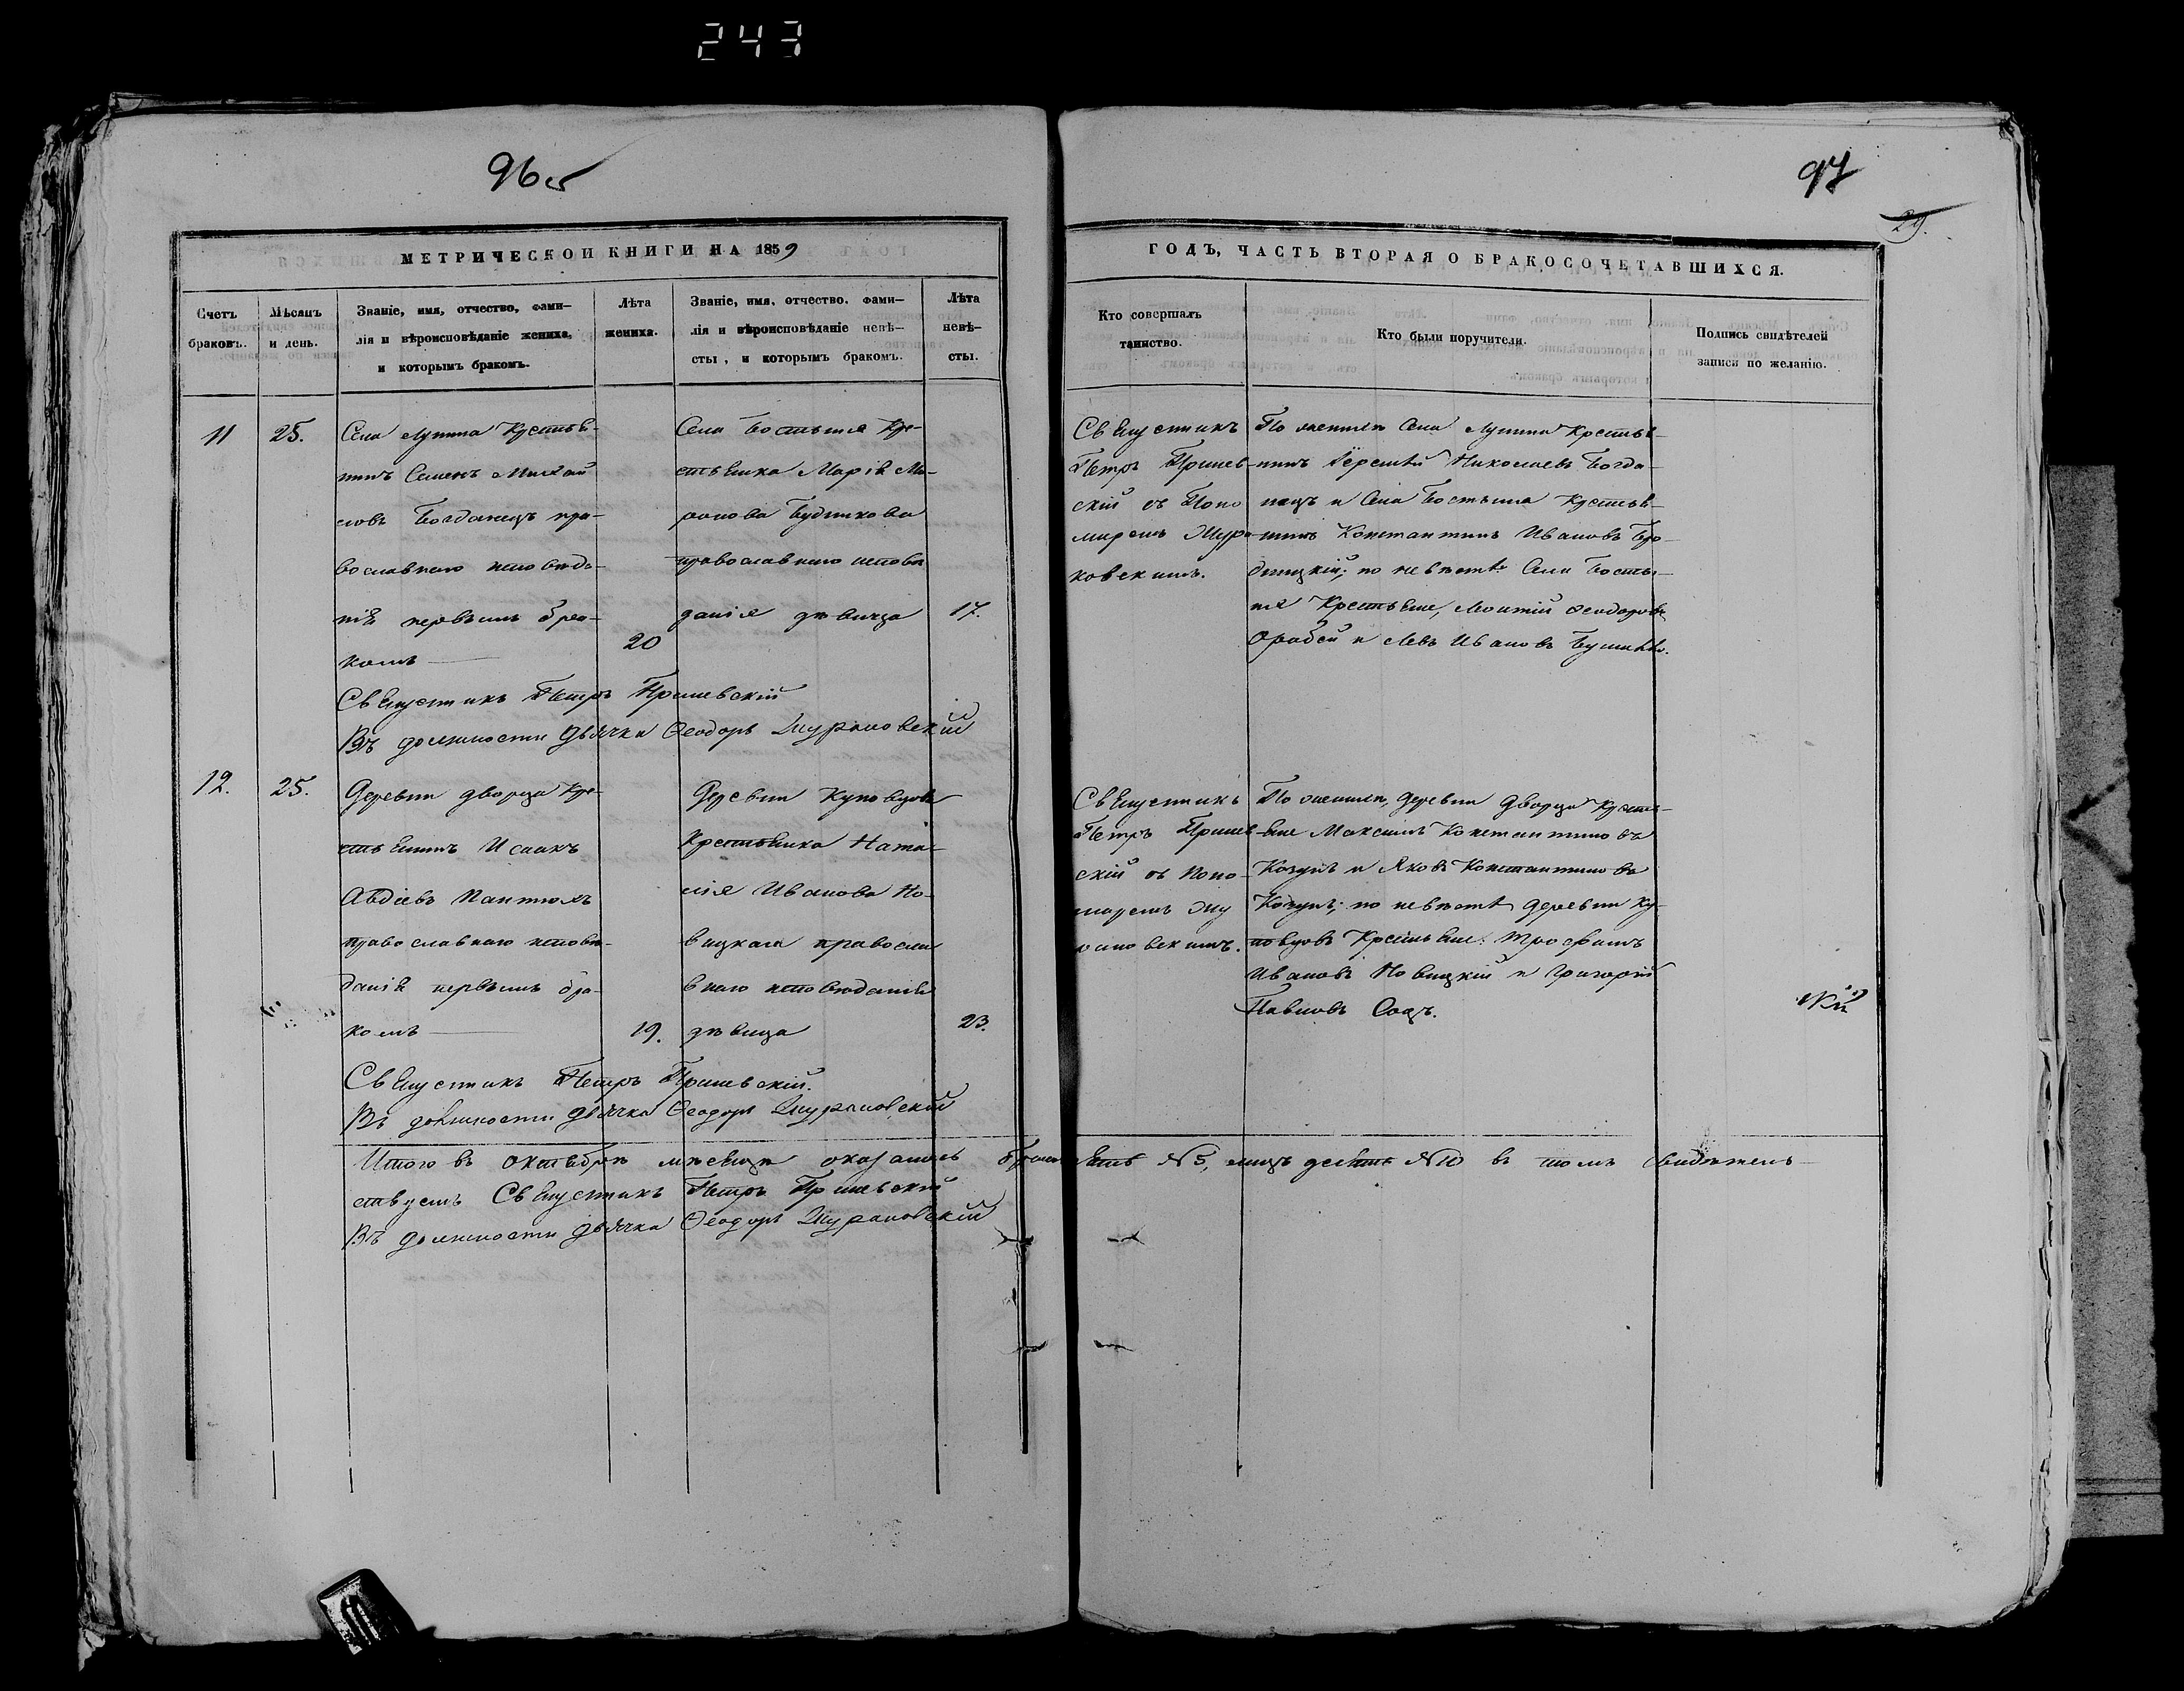 243
96об
97
29.
МЕТРИЧЕСКОЙ КНИГИ НА 1859
ГОДЪ, ЧАСТЬ ВТОРАЯ О БРАКОСОЧЕТАВШИХСЯ.
Счетъ
браковъ.
Мѣсяцъ
и день.
Званіе, имя, отчество, фами-
лія и вѣроисповѣданіе жениха,
и которымъ бракомъ.
Лѣта
жениха.
Званіе, имя, отчество, фами-
лія и вѣроисповѣданіе невѣ-
сты, и которымъ бракомъ.
Лѣта
невѣ-
сты.
Кто совершалъ
таинство.
Кто были поручители.
Подпись свидѣтелей
записи по желанію.
11
25.
Села Лунина Крестья-
нинъ Семенъ Михай
ловъ Богданецъ пра-
вославнаго исповѣда-
нія первымъ бра-
комъ
20
Села Бостыня Кре-
стьянка Марія Ма-
ронова Будникова
православнаго исповѣ
данія дѣвица
17.
Священникъ
Петръ Пришев-
скій съ Поно
маремъ Жура-
ковскимъ.
По женихѣ Села Лунина Крестья-
нинъ Николаевъ Богда-
нецъ и Села Бостыня Крестья-
нинъ Константинъ Ивановъ
по невѣстѣ Села Босты-
ня Крестьяне, Леонтій Феодоровъ
и Левъ Ивановъ
Священникъ Петръ Пришевскій
Въ должности Дьячка Феодоръ Жураковскій
12.
25.
Деревни Дворца Кре-
стьянинъ Исаакъ
Авдіевъ Пантюхъ
православнаго исповѣ-
данія первымъ бра-
комъ
19.
Деревни Куповцовъ
Крестьянка Ната-
лія Иванова Но-
вицкая правосла
внаго исповѣданія
дѣвица
23.
Священникъ
Петръ Пришев
скій съ Поно-
маремъ Жу
раковскимъ.
По женихѣ, деревни Дворца Кресть-
яне Максимъ Константиновъ
Козулъ и Яковъ Константиновъ
Козулъ; по невѣстѣ деревни Ку-
повцовъ Крестьяне: Трофимъ
Ивановъ Новицкій и Григорій
Павловъ Соцъ.
Священникъ Петръ Пришевскій.
Въ должности Дьячка Феодоръ Жураковскій
Итого въ Октябрѣ мѣсяцѣ оказалось пять №5, лицъ десять №10 въ томъ свидѣтель-
ствуемъ Священникъ Петръ Пришевскій
Въ должности Дьячка Феодоръ Жураковскій